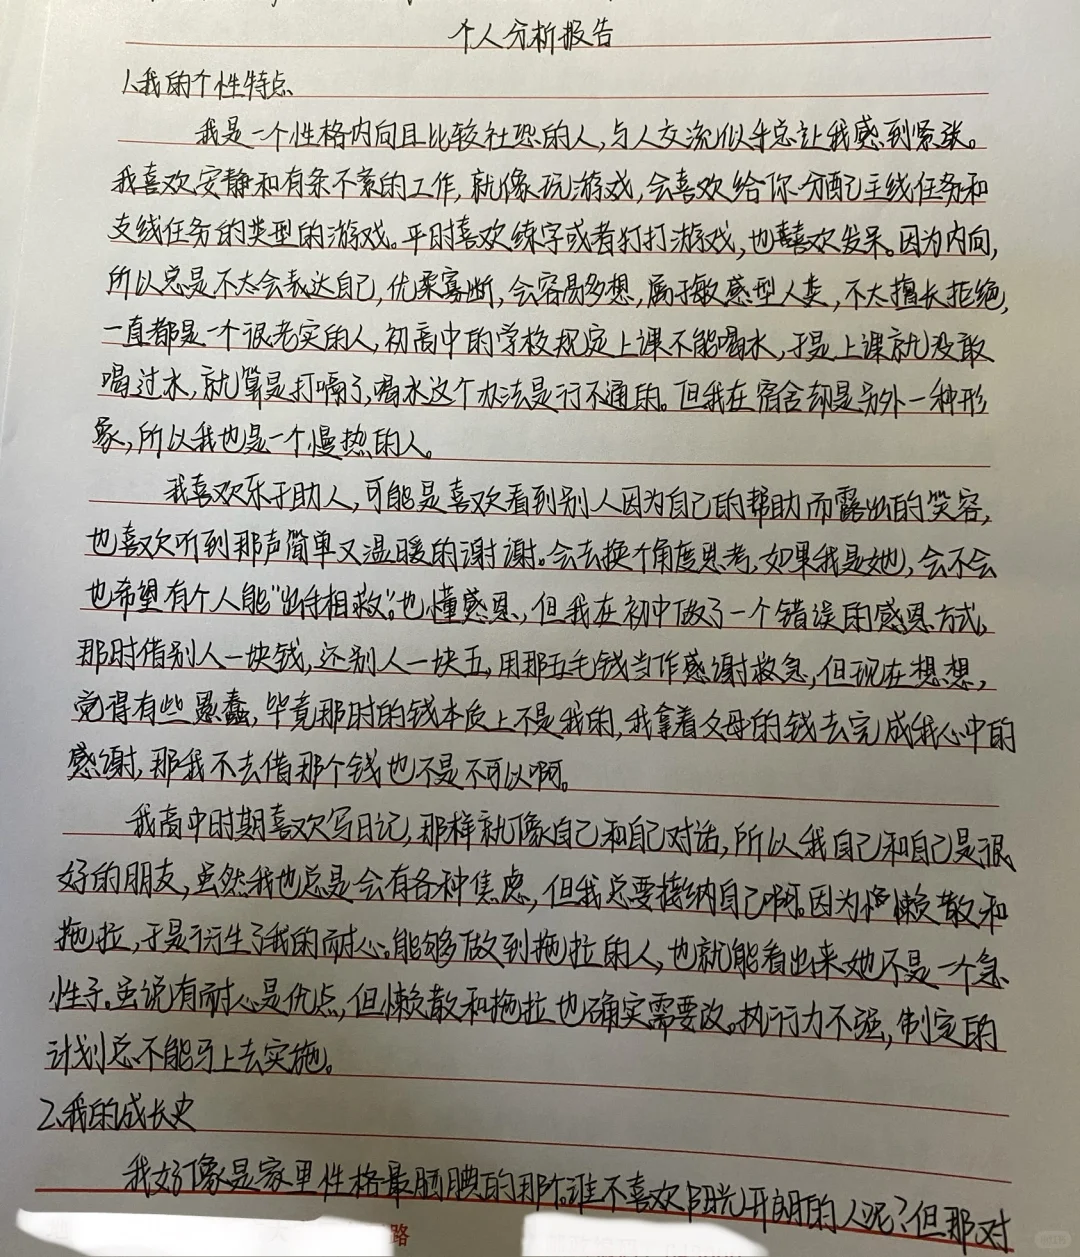 个人分析报告
1.我的个性特点
我是一个性格内向且比较社恐的人,与人交流似乎总让我感到紧张。
我喜欢安静和有条不紊的工作,就像玩游戏,会喜欢给你分配主线任务和
支线任务的类型的游戏。平时喜欢练字或者打打游戏,也喜欢发呆。因为内向,
所以总是不太会表达自己,优柔寡断,会容易多想,属于敏感型人类,不太擅长拒绝,
一直都是一个很老实的人,初高中的学校规定上课不能喝水,于是上课就没敢
喝过水,就算是打嗝了,喝水这个办法是行不通的。但我在宿舍却是另外一种形
象,所以我也是一个慢热的人。
我喜欢乐于助人,可能是喜欢看到别人因为自己的帮助而露出的笑容,
也喜欢听到那声简单又温暖的谢谢。会去换个角度思考,如果我是她,会不会
也希望有个人能"出手相救"。也懂感恩,但我在初中做了一个错误的感恩方式,
那时借别人一块钱,还别人一块五,用那五毛钱当作感谢救急,但现在想想,
觉得有些愚蠢,毕竟那时的钱本质上不是我的,我拿着父母的钱去完成我心中的
感谢,那我不去借那个钱也不是不可以啊。
我高中时期喜欢写日记,那样就像自己和自己对话,所以我自己和自己是很
好的朋友,虽然我也总是会有各种焦虑,但我总要接纳自己啊。因为懒散和
拖拉,于是衍生了我的耐心。能够做到拖拉的人,也就能看出来她不是一个急
性子。虽说有耐心是优点,但懒散和拖拉也确实需要改。执行力不强,制定的
计划总不能马上去实施。
2.我的成长史
我好像是家里性格最腼腆的那个。谁不喜欢阳光开朗的人呢?但那对
路